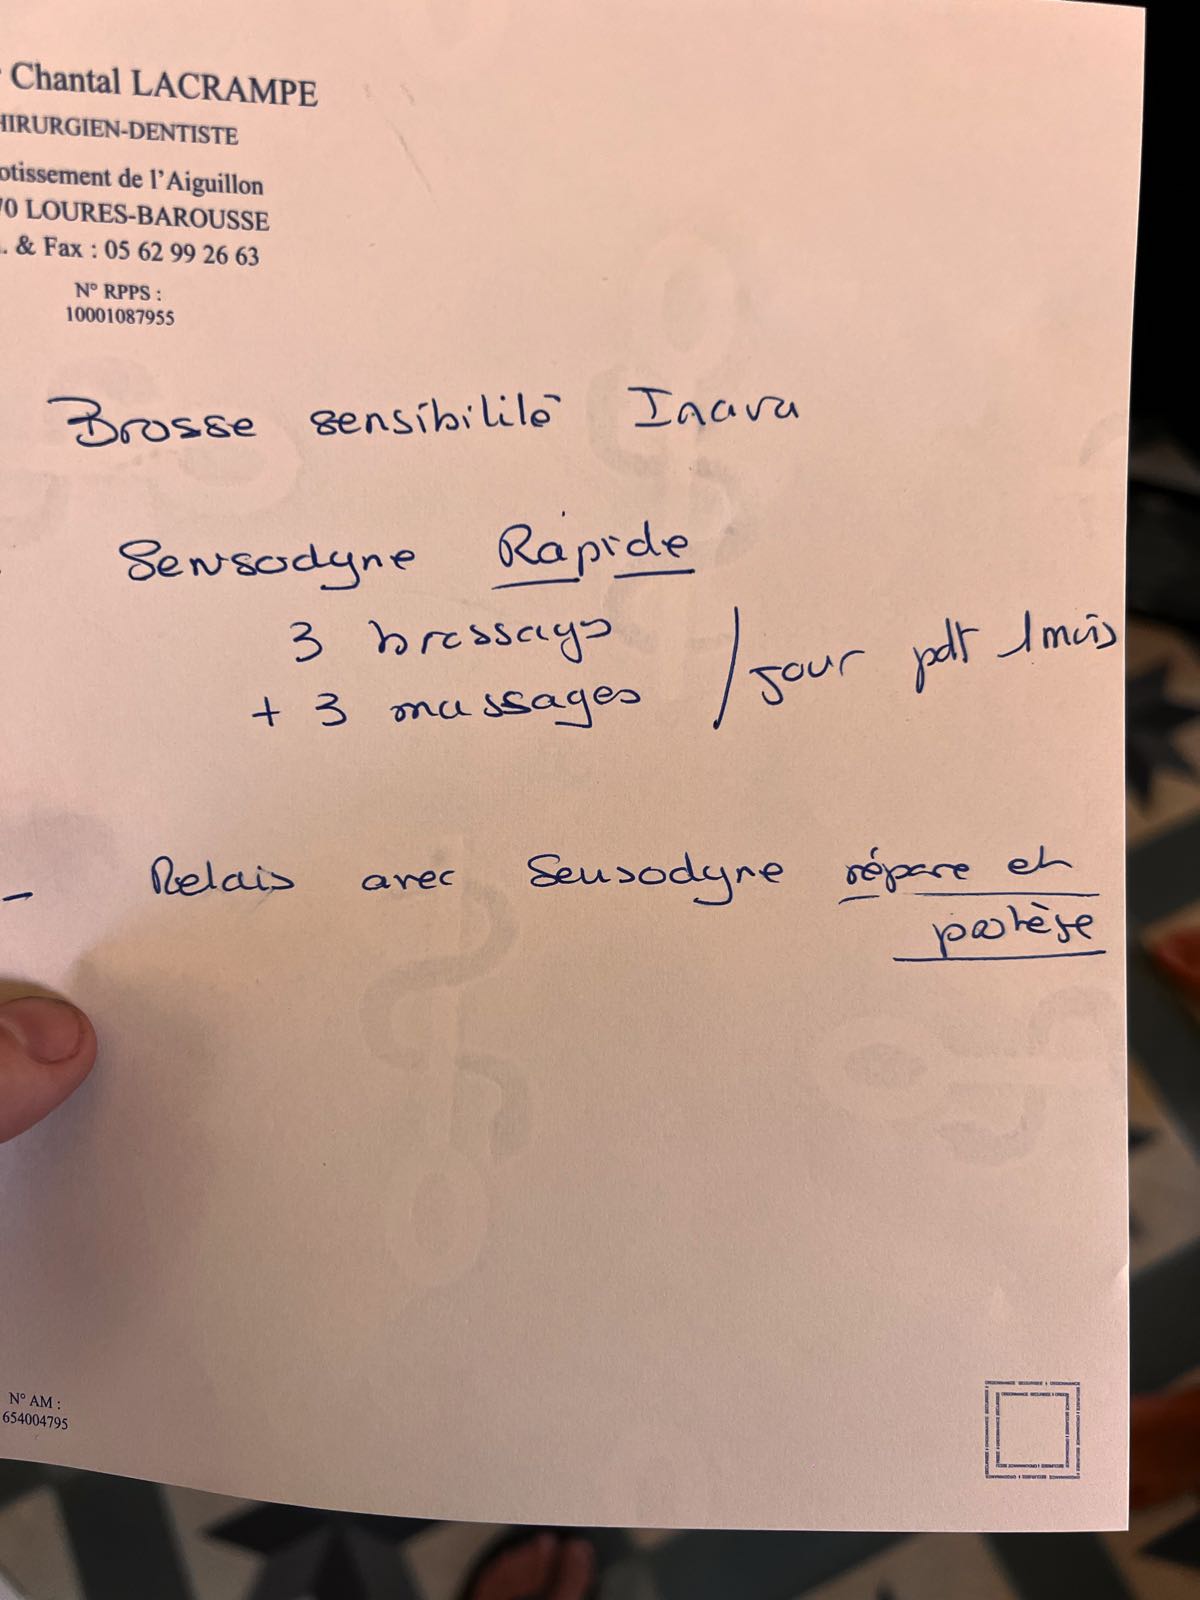 Chantal LACRAMPE
HIRURGIEN-DENTISTE
otissement de l'Aiguillon
70 LOURES-BAROUSSE
. & Fax : 05 62 99 26 63
N° RPPS :
10001087955
Brosse sensibilité Inava
Sensodyne Rapide
3 brossages
+ 3 massages / jour pdt 1 mois
- Relais avec Sensodyne répare et
protège
N° AM :
654004795